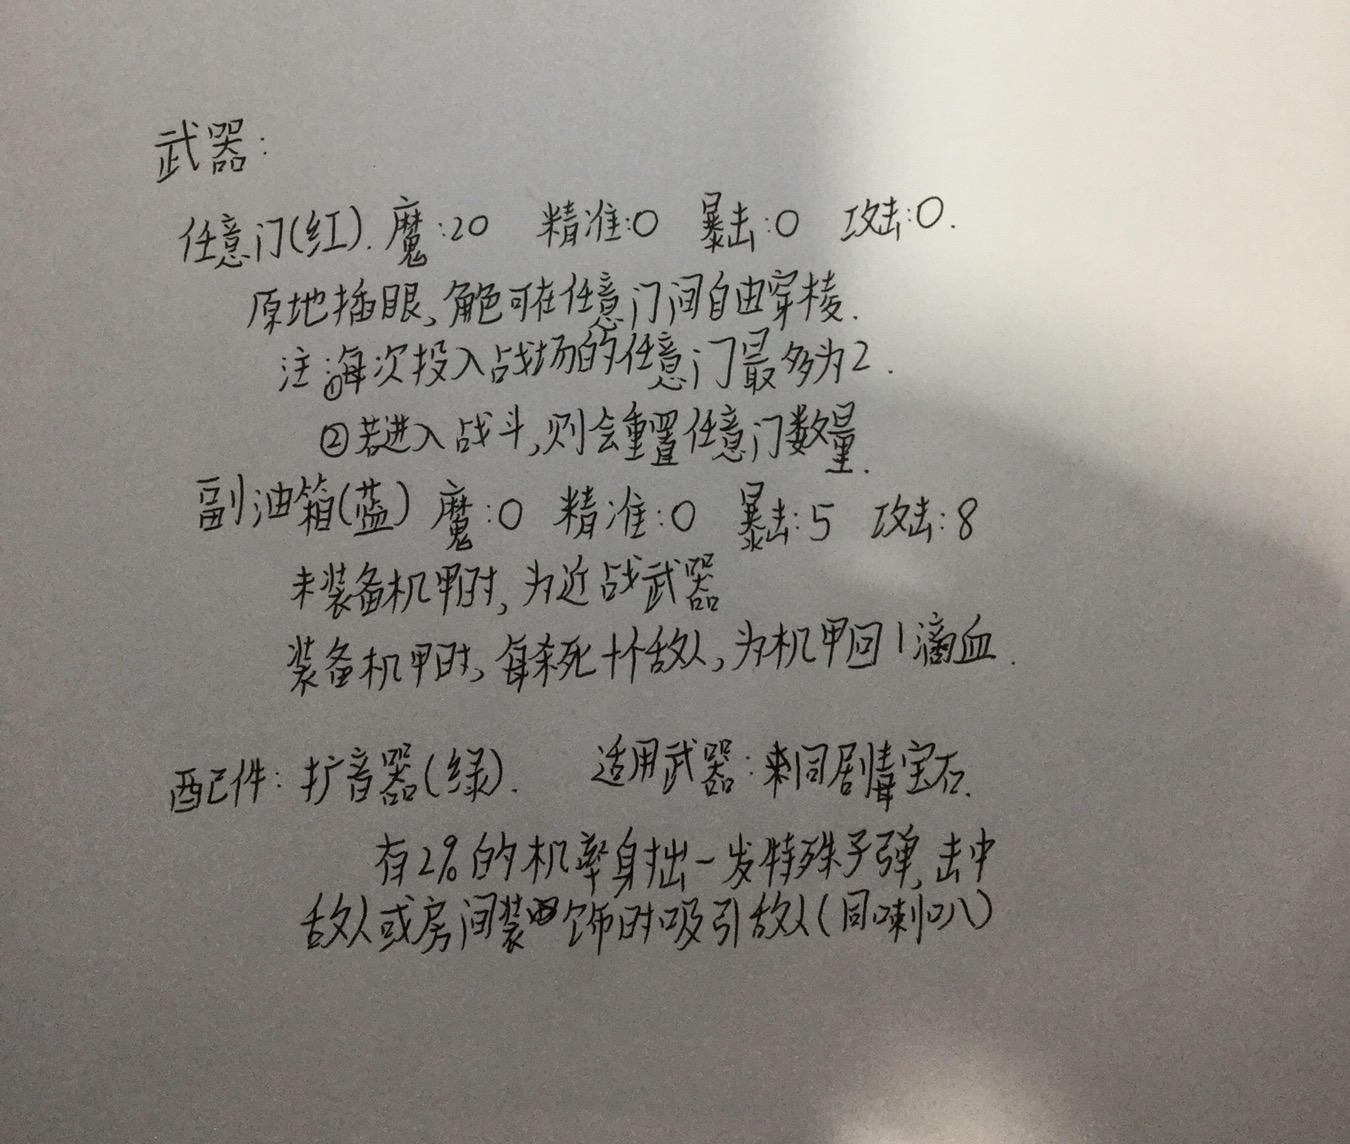 武器:
任意门(红). 魔:20 精准:0 暴击:0 攻击:0.
原地插眼、角色可在任意门间自由穿梭.
注:①每次投入战场的任意门最多为2.
②若进入战斗,则会重置任意门数量.
副油箱(蓝) 魔:0 精准:0 暴击:5 攻击:8
未装备机甲时,为近战武器
装备机甲时,每杀死十个敌人,为机甲回1滴血.
配件: 扩音器(绿). 适用武器:来同剧情宝石.
有2%的机率射出一发特殊子弹,击中
敌人或房间装饰时吸引敌人(同喇叭)